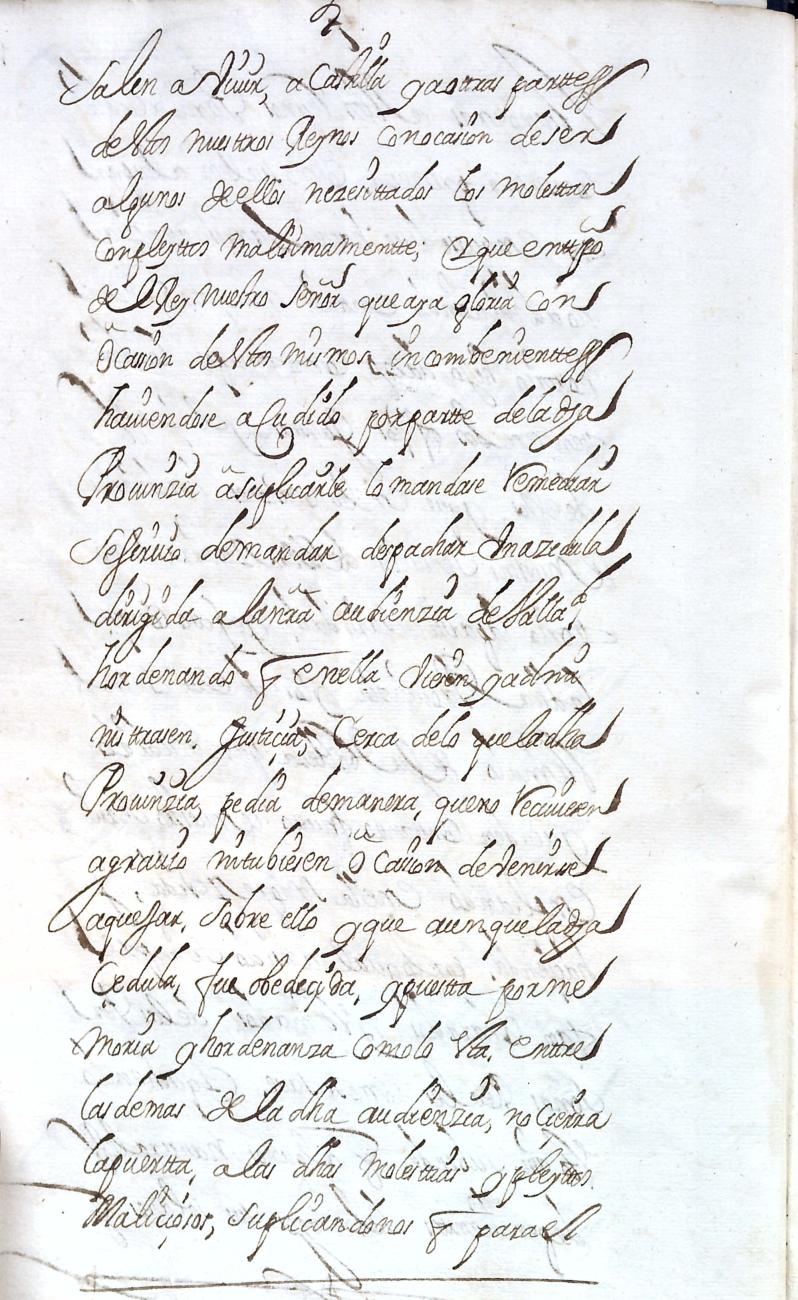 salen a viuir, a Castilla y a otras parttes
de estos nuestros Reynos con ocasion de ser
algunos de ellos nezesittados los molesttan
con pleyttos malisimamentte; y que en ttpõ
del Rey nuestro señor que aya gloria con
ocasion de estos mismos incombenienttes
hauiendose acudido por partte de la dha
Prouinzia a suplicarle lo mandase Remediar
se siruio de mandar despachar vna zedula
dirigida a la nrã audienzia de Vallad
hordenando q en ella viesen y admi
nisttrasen Justicia, Cerca de lo que la dha
Prouinzia, pedia de manera, que no Reciuiesen
agrauio ni tubiesen ocasion de venirse
a quejar, sobre ello y que aunque la dha
Cedula, fue obedecida, y puestta por me
moria y hordenanza como lo esta, entre
las demas de la dha audienzia, no cierra
la puertta, a las dhas molesttias y pleyttos
Maliciosos, suplicandonos q para el